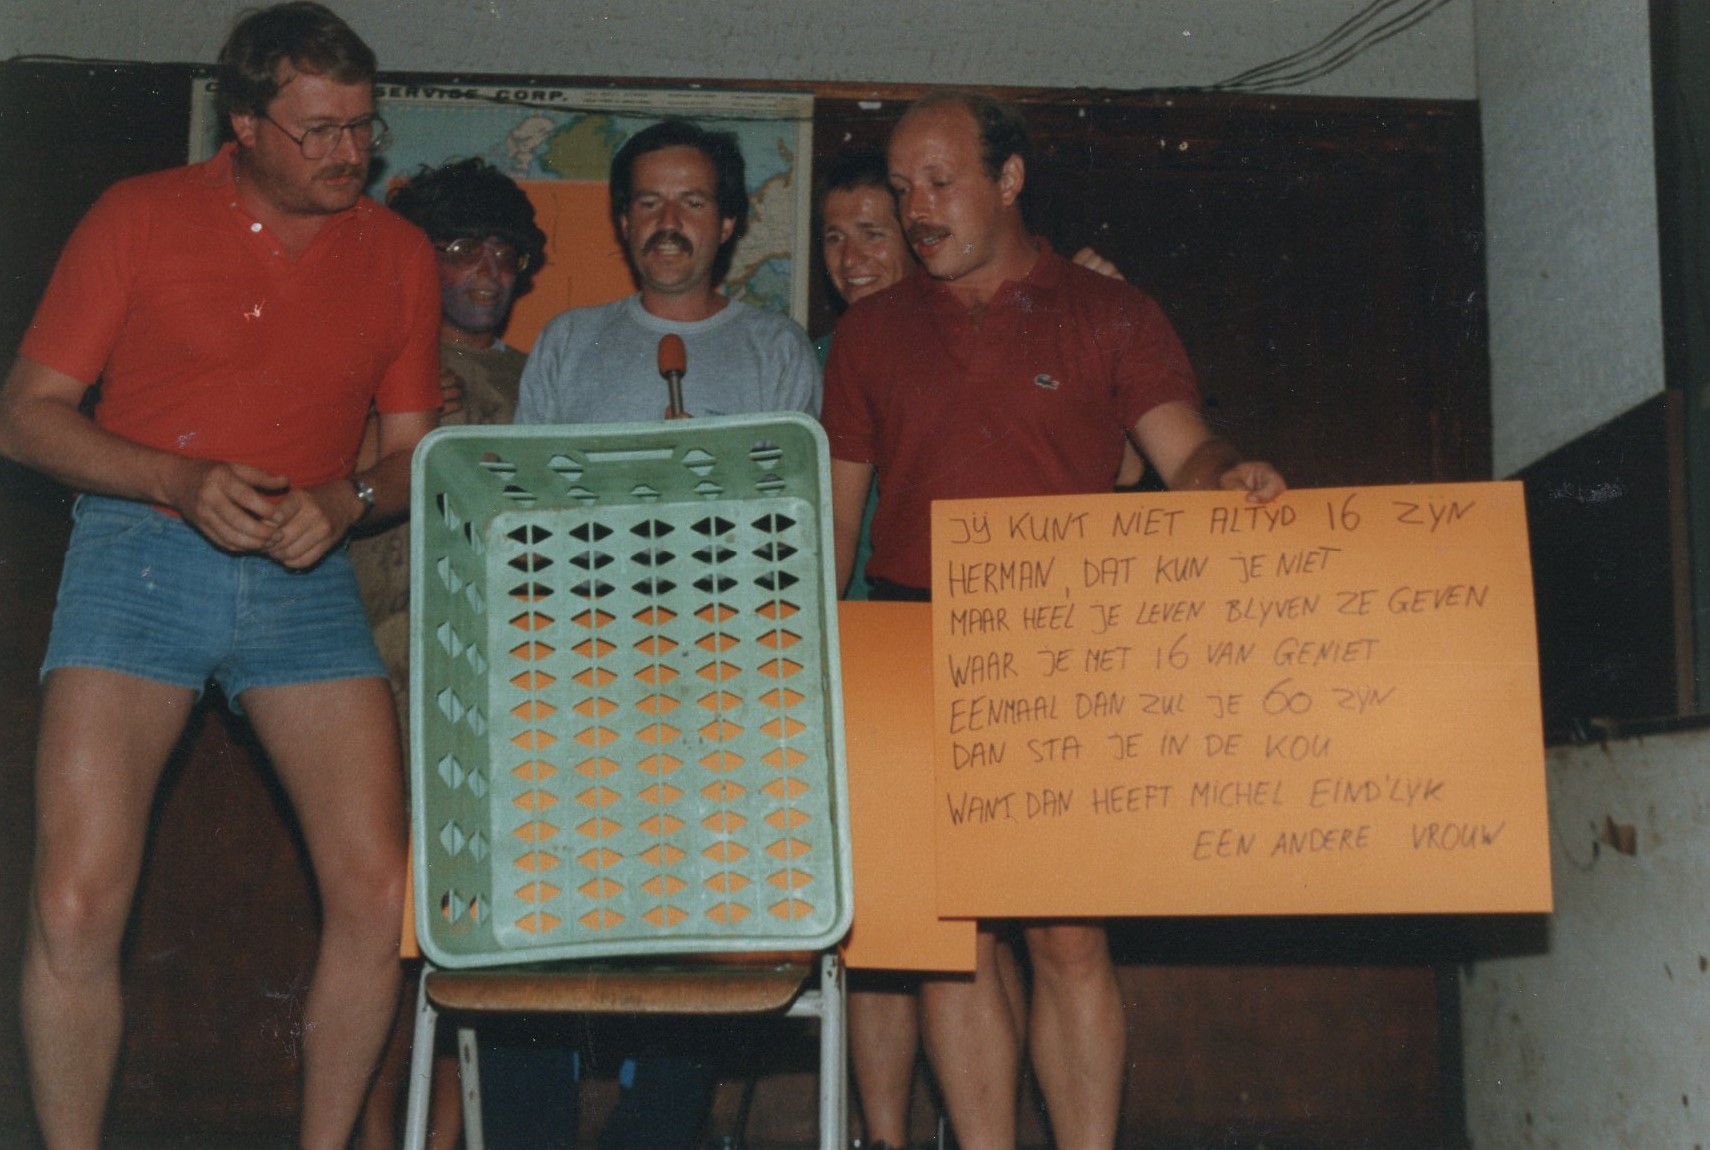 SERVICE CORP.
JIJ KUNT NIET ALTYD 16 ZYN
HERMAN, DAT KUN JE NIET
MAAR HEEL JE LEVEN BLYVEN ZE GEVEN
WAAR JE MET 16 VAN GENIET
EENMAAL DAN ZUL JE 60 ZYN
DAN STA JE IN DE KOU
WANT DAN HEEFT MICHEL EIND'LYK
EEN ANDERE VROUW